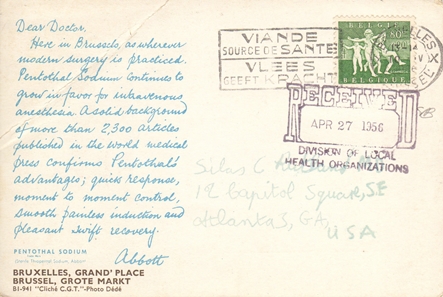 Dear Doctor.
Here in Brussels, as wherever
modern surgery is practiced.
Pentothal Sodium continues to
grow in favor for intravenous
anesthesia. A solid background
of more than 2,300 articles
published in the world medical
press confirms Pentothal's
advantages; quick response,
moment to moment control,
smooth painless induction and
pleasant swift recovery.
Abbott
PENTOTHAL SODIUM
BRUXELLES, GRAND' PLACE
BRUSSEL, GROTE MARKT
B1-941 "Cliché C.G.T."-Photo Dédé
VIANDE
SOURCE DE SANTE
VLEES
GEEFT KRACHT
BELGIE
80
BELGIQUE
RECEIVED
APR 27 1956
DIVISION OF LOCAL
HEALTH ORGANIZATIONS
Silas C
12 Capitol Square, SE
Atlanta 3, GA,
USA